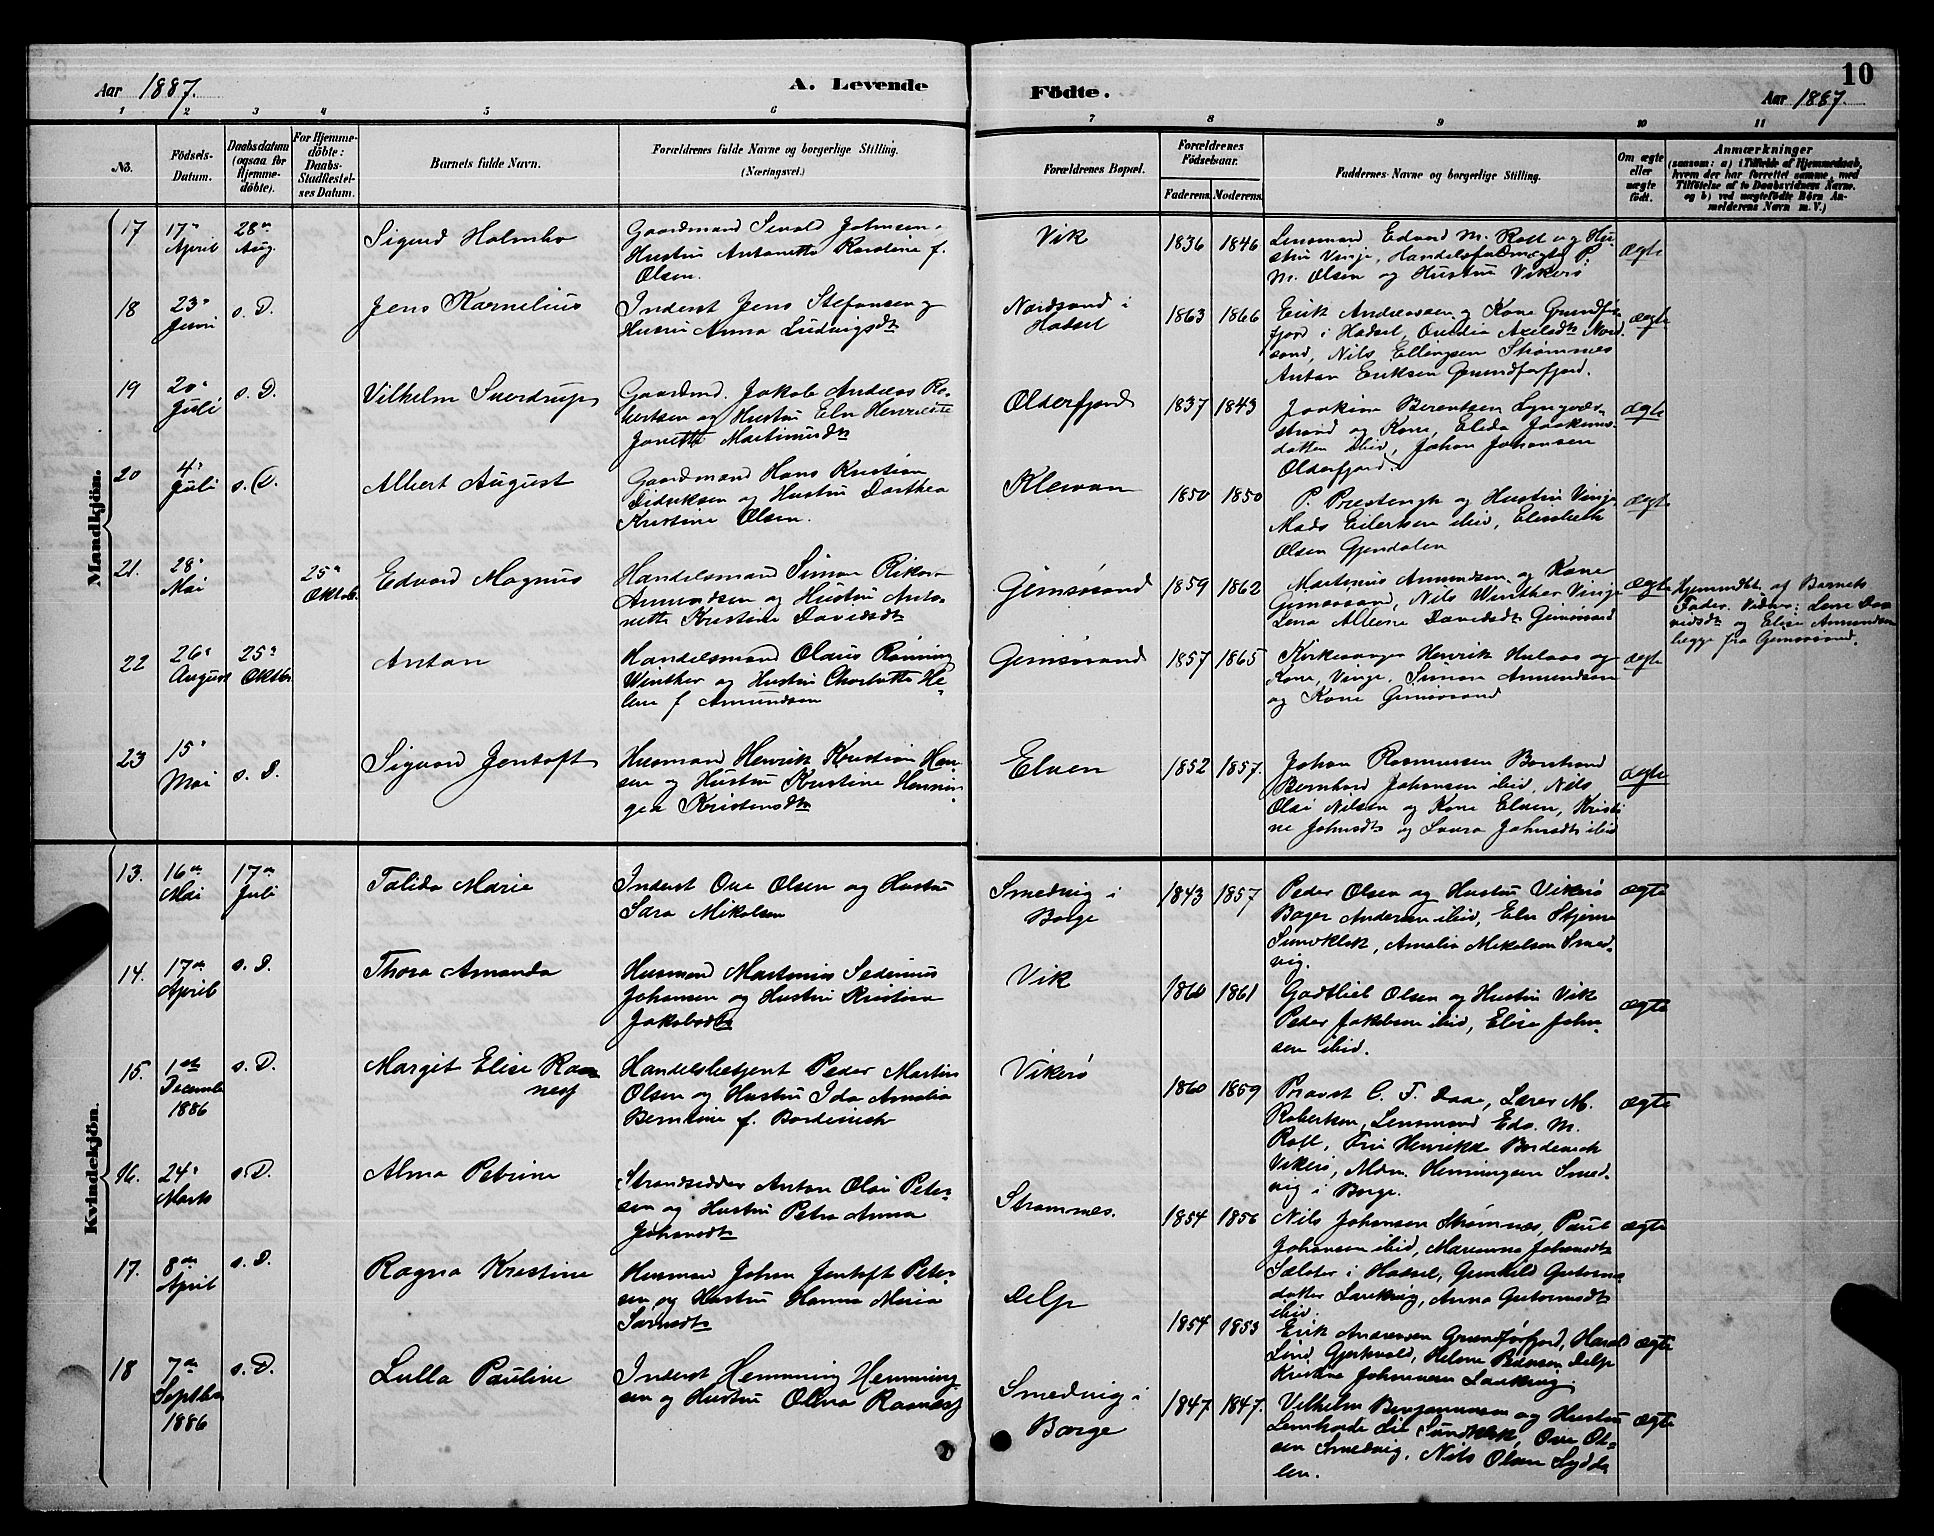 Aar 1887.
A. Levende
Födte.
10
Aar 1887.
1 2 3 4 5 6 7 8 9 10 11
No.
Födsels-
Datum.
Daabsdatum
(ogsaa for
Hjemme-
döbte).
For Hjemme-
döbte:
Daabs-
Stadfestel-
ses Datum.
Barnets fulde Navn.
Forældrenes fulde Navne og borgerlige Stilling.
(Næringsvei.)
Forældrenes Bopæl.
Forældrenes
Födselsaar.
Faderens.
Moderens.
Faddernes Navne og borgerlige Stilling.
Om ægte
eller
uægte
födt.
Anmærkninger
(saasom: a) i Tilfælde af Hjemmedaab,
hvem der har forrettet samme, med
Tilföielse af to Daabsvidners Navne,
og b) ved uægtefödte Börn An-
melderens Navn m. V.)
Mandkjön.
17
17de
April
28de
Aug.
Sigurd Holmbo
Gaardmand Sivald Johnsen
Hustru Antonette Karoline f.
Olsen.
Vik
1836 1846
Lensmand Edvard M. Rott og Hu-
stru Vinje, Handelsfuldmægtig P.
M. Olsen og Hustru Vikerö
ægte
18
23de
Juni
s. D.
Jens Kornelius
Inderst Jens Stefansen og
Hustru Anna Ludvigsdtr
Nordsand i
Hadsel
1863 1866
Erik Andreassen og Kone Grundför-
fjord i Hadsel, Ovedia Axelsdtr Nord-
sand, Nils Ellingsen Strömnes
Anton Eriksen Grundförfjord.
ægte
19
20de
Juli
s. D.
Vilhelm Sverdrup
Gaardmd. Jakob Andreas Ro-
bertsen og Hustru Eln Henriette
Jonette Martinusdtr
Olderfjord
1837 1843
Joakim Berentsen Lyngvær-
strand og Kone, Elida Joakims-
datter ibid, Johan Johansen
Olderfjord.
ægte
20
4de
Juli
s. D.
Albert August
Gaardmand Hans Kristian
Didriksen og Hustru Dorthea
Kristine Olsen.
Klevan
1850 1850
P. Prestengh og Hustru Vinje
Mads Eilertsen ibid, Elisabeth
Olsen Gjendalen
ægte
21.
28de
Mai
25de
Oktob.
Edvard Magnus
Handelsmand Simon Rikor
Amundsen og Hustru Anto-
nette Kristine Davidsdtr
Gimsösand
1859 1862
Martinus Amundsen og Kone
Gimsösand, Nils Winther Vinje
Lena Alline Davidsdtr Gimsösand
ægte
Hjemmedöbt af Barnets
Fader. Vidner: Lene Da-
vidsdtr og Elise Amundsen
begge fra Gimsösand.
22
26de
August
25de
Oktbr.
Anton
Handelsmand Olaus Rönning
Winther og Hustru Charlotte He-
lene f. Amundsen
Gimsösand
1857 1865
Kirkesanger Henrik Hulaas og
Kone, Vinje, Simon Amundsen
og Kone Gimsösand
ægte
23
15de
Mai
s. D.
Sigvard Jentoft
Husmand Henrik Kristian Han-
sen og Hustru Kristine Hennin-
gea Kristensdtr
Elven
1852 1857.
Johan Rasmussen Borstrand
Bernhard Johansen ibid, Nils
Olai Nilsen og Kone Elven, Kristi-
ne Johnsdtr og Laura Johnsdtr ibid
ægte
Kvindekjön.
13.
16de
Mai
17de
Juli
Talida Marie
Inderst Ove Olsen og Hustru
Sara Mikalsen
Smedvig i
Borge
1843 1857
Peder Olsen og Hustru Vikerö
Bager Andersen ibid, Eln Stjerne
Sundklek, Amalia Mikalsen Smed-
vig.
ægte
14.
17de
April
s. D.
Thora Amanda
Husmand Martinius Sedenius
Johansen og Hustru Kristina
Jakobsdtr
Vik
1860 1861
Godtlieb Olsen og Hustru Vik
Peder Jakobsen ibid, Elise John-
sen ibid.
ægte
15.
1ste
Decembr
1886
s. D.
Margit Elise Raa-
nes
Handelsbetjent Peder Martin
Olsen og Hustru Ida Amalia
Berntine f. Bordevich
Vikerö
1860 1859
Provst C. F. Daae, Lærer M.
Robertsen, Lensmand Edv. M.
Rott, Fru Henrikke Bordevich
Vikerö, Mdm. Henningsen Smed-
vig i Borge.
ægte
16.
24de
Marts
s. D.
Alma Petrine
Strandsidder Anton Olai Peter-
sen og Hustru Petra Anna
Johansdtr
Strömnes.
1854 1856
Nils Johansen Strömnes, Paul
Johansen ibid, Marianna Johansdtr
Sælater i Hadsel, Gunhild Gutorms-
datter Laukvig, Anna Gutormsdtr
ibid.
ægte
17.
8de
April
s. D.
Ragna Kristine
Husmand Johan Jentoft Peter-
sen og Hustru Hanna Maria
Larsdtr
Delp
1854 1853
Erik Andreassen Grundförfjord, Harald
Lind Gjerhvald, Helene Pedersen Delp
Kristine Johannesen Laukvig.
ægte
18
7de
Septbr
1886
s. D.
Lulla Pauline
Inderst Hemming Hemming-
sen og Hustru Olina Raanes
Smedvig i
Borge
1847 1847.
Vilhelm Benjaminsen og Hustru
Sundklek, Ove Ol-
sen Smedvig, Nils Olsen Lydda-
len.
ægte